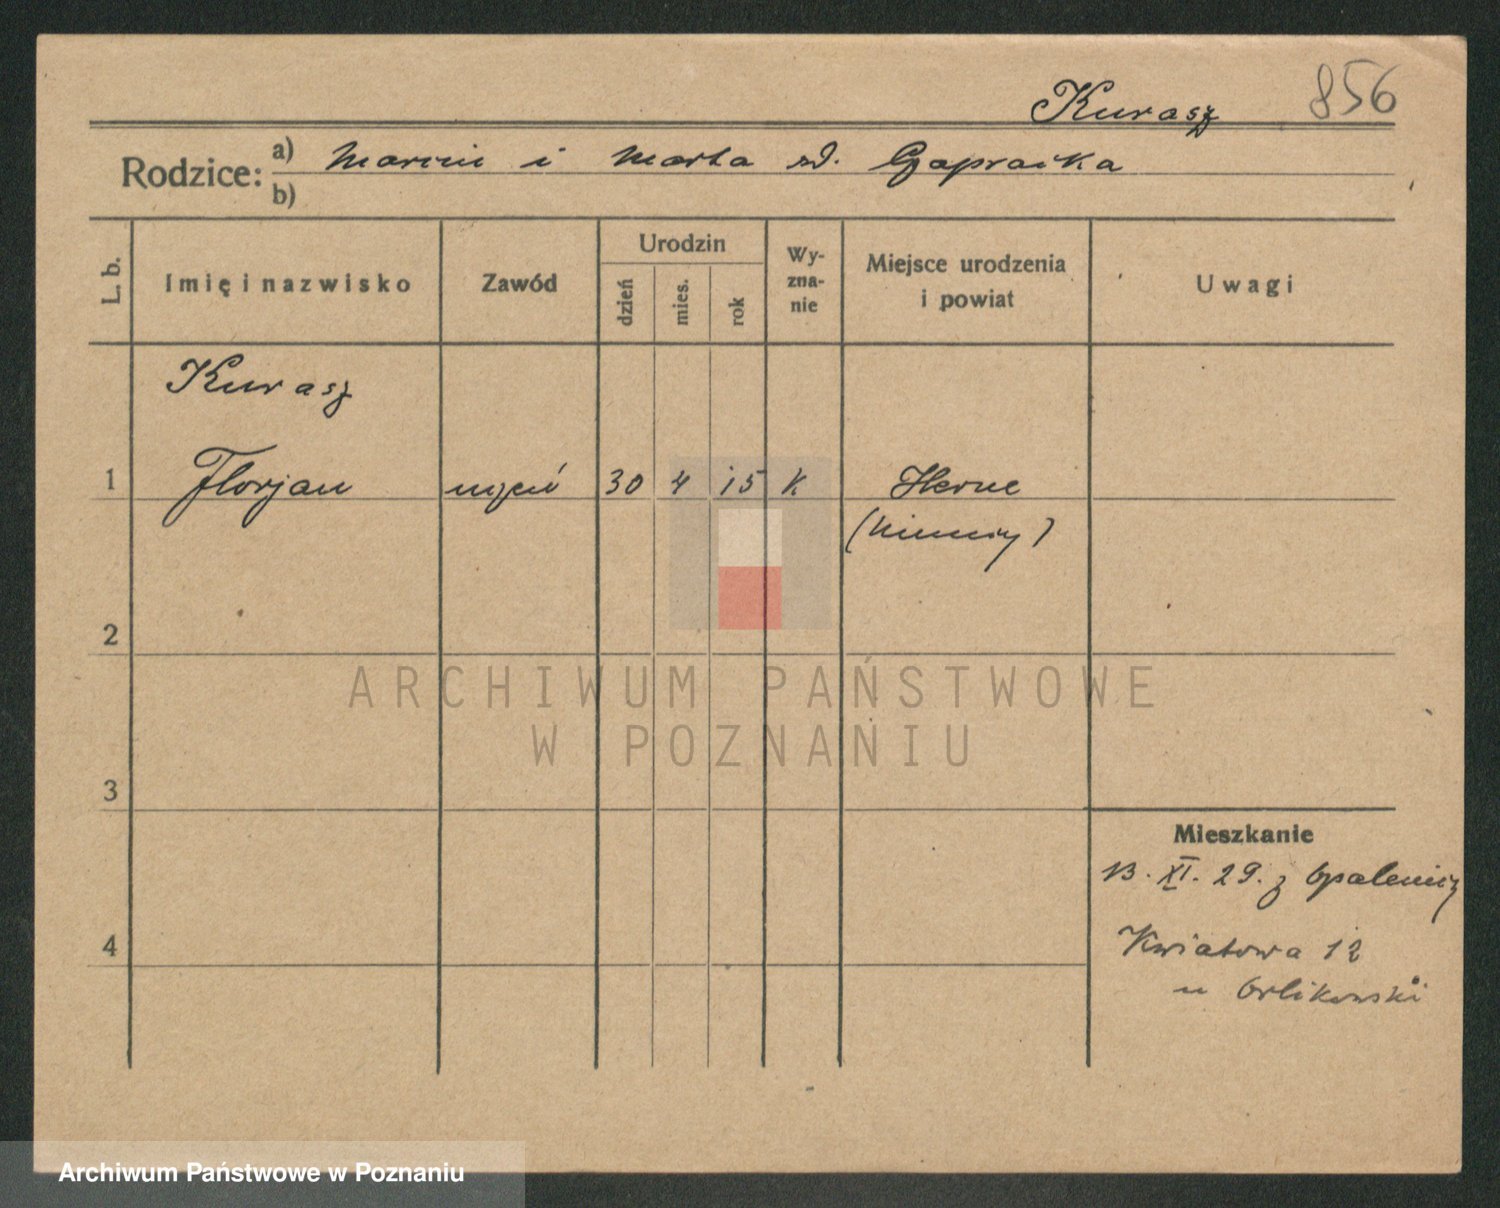 Kurasz 856
Rodzice: a) Marcin i Marta zd.
b)
L. b. Imię i nazwisko Zawód Urodzin dzień mies. rok Wy-zna-nie Miejsce urodzenia i powiat Uwagi
Kurasz
1 Florjan uczeń 30 4 15 K Herne
(Niemcy)
2
ARCHIWUM PAŃSTWOWE
W POZNANIU
3
Mieszkanie
13. XI. 29. z Opalenicy
4 Kwiatowa 12
u Orlikowski
Archiwum Państwowe w Poznaniu